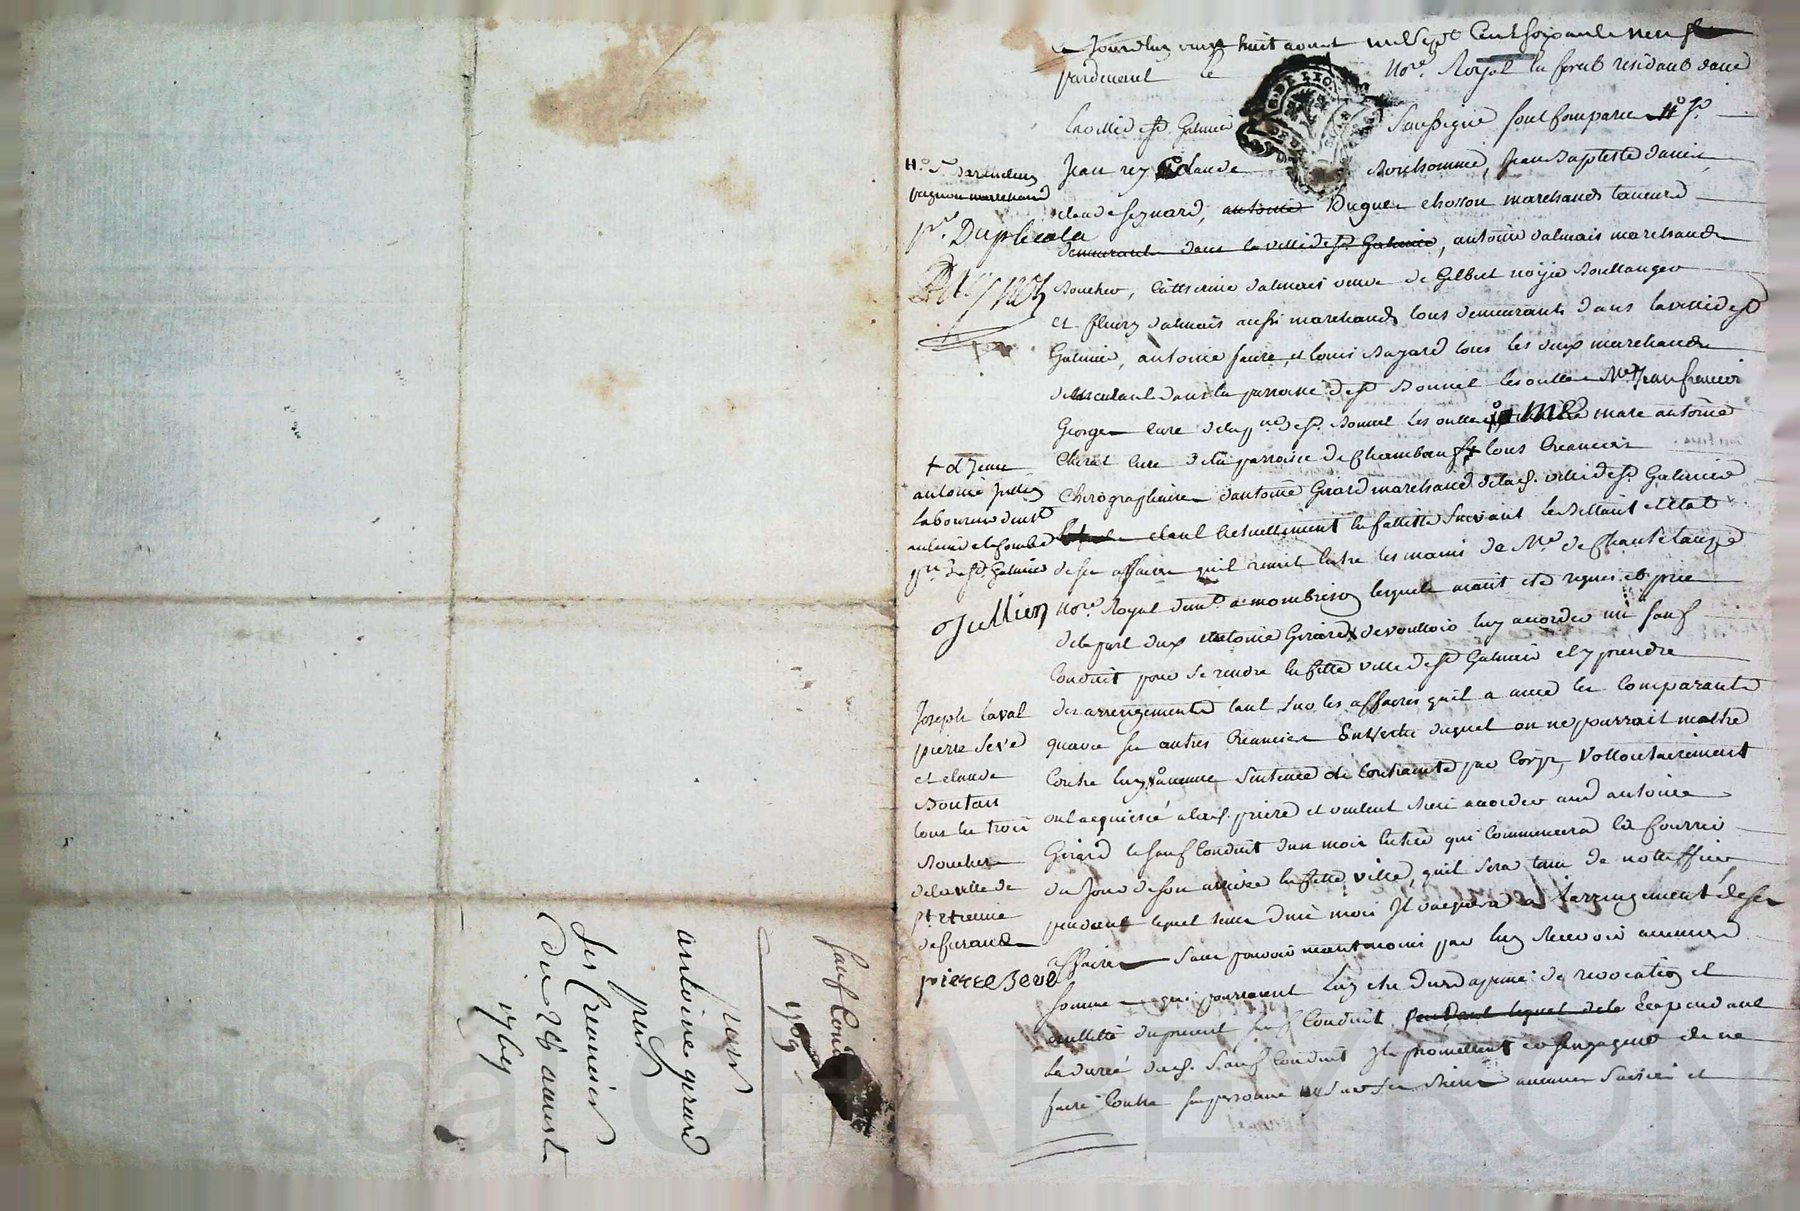 ce Jourdhuy vingt huit aoust mil Sept Cent Soixante neuf
pardevant le Nore. Royal En forest residant dans
la ville de st. Galmier Soussigné sont Comparu Ho. Sr.
Jean rey Claude Bonhomme, Jean Baptiste
claude Seynard, antoine Hugue chosson marchands taneurs
demeurants dans la ville de st. Galmier, antoine dalmais marchand
Boucher, Catherine dalmais veuve de Gilbert Boullanger
et fleury dalmais aussi marchands tous demeurants dans la ville de st
Galmier, antoine faure, et louis Bayard tous les deux marchands
dans la parroisse de st Bonnet les oulles Mre. Jean francois
George Curé de la pse de st. Bonnet les oulles Me marc antoine
Cheret Curé de la parroisse de Chambeuf + tous Creanciers
Chirographaires d'antoine Girard marchand de lad. ville de st Galmier
etant actuellement En faillite Suivant le Billant et Etat
de ses affaires quil remit Entre les mains de Me. de Chantelauze
Nore. Royal a monbrison lequel auroit eté requis et prié
de la part dud antoine Girard de vouloir luy accorder un sauf
Conduit pour se rendre En cette ville de st Galmier et y prendre
des arrengements tant Sur les affaires quil a avec les Comparants
quavec ses autres Creanciers En Vertu duquel on ne pourrait mettre
Contre luy aucune Sentence de Contrainte par Corps, Vollontairement
ont acquiescé a lad. prierre et veulent Bien accorder aud antoine
Girard le sauf Conduit dun mois Entier qui Commencera a Courrir
du Jour de son arrivée En cette ville, quil sera tenu de notiffier
pendant lequel tems dun mois Il vaquera a l'arrengement de ses
affaires Sans pouvoir neantmoins par luy Recevoir aucunes
Sommes qui pourroient Luy etre dues a peine de revocation et
nullité du present sauf Conduit pendant lequel Et cependant
La durée dud. Sauf Conduit Ils promettent et sengagent de ne
faire Contre sa personne ny Sur ses Biens aucunes Saisies et
Ho. Sr. Barthelemy
pagnon marchand
pr. Duplicata
+ d Jean
antoine Jullien
laboureur
pse de st Galmier
Jullien
Joseph laval
pierre Seve
et claude
Boutan
tous les trois
Bouchers
de la ville de
st etienne
de furand
pierre Seve
Sauf Cond
1769
pour
antoine girard
pres
Ses Creanciers
Du 28 aoust
1769
CHAREYRON